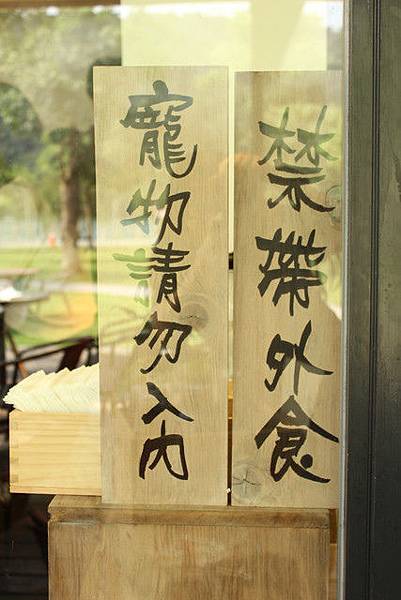 禁帶外食
寵物請勿入內